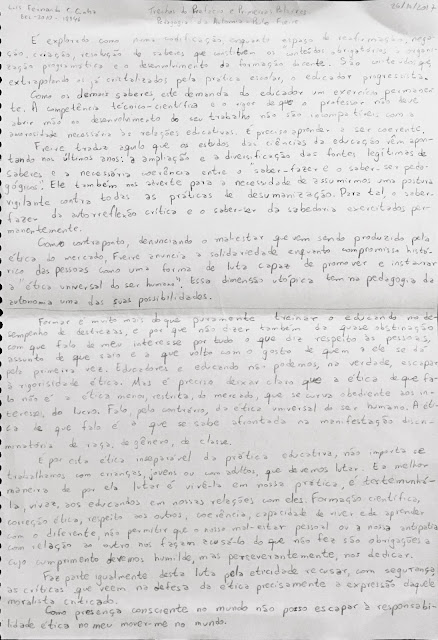 Luis Fernando C. Castro
Trechos do Prefácio e Primeiras Palavras
Pedagogia da Autonomia - Paulo Freire
É explorado como numa codificação enquanto espaço de reafirmação, nega-
ção, criação, resolução de saberes que constituem os conteúdos obrigatórios à organização
programática e o desenvolvimento da formação docente. São conteúdos que,
extrapolando os já cristalizados pela prática escolar, o educador progressista.
Como os demais saberes, este demanda do educador um exercício permanen-
te. A competência técnico-científica e o rigor de que o professor não deve
abrir mão no desenvolvimento do seu trabalho não são incompatíveis com a
amorosidade necessária às relações educativas. É preciso aprender a ser coerente.
Freire traduz aquilo que os estudos das ciências da educação vêm apon-
tando nos últimos anos: a ampliação e a diversificação das fontes legítimas de
saberes e a necessária coerência entre o saber-fazer e o saber-ser peda-
gógicos. Ele também nos adverte para a necessidade de assumirmos uma postura
vigilante contra todas as práticas de desumanização. Para tal, o saber-
fazer da autorreflexão crítica e o saber-ser da sabedoria exercitados per-
manentemente.
Como contraponto, denunciando o mal-estar que vem sendo produzido pela
ética do mercado, Freire anuncia a solidariedade enquanto compromisso histó-
rico das pessoas como uma forma de luta capaz de promover e instaurar
a "ética universal do ser humano". Essa dimensão utópica tem na pedagogia da
autonomia uma das suas possibilidades.
Formar é muito mais do que puramente treinar o educando no de-
sempenho de destrezas, e por que não dizer também da quase obstinação
com que falo de meu interesse por tudo o que diz respeito às pessoas,
assunto de que saio e a que volto com o gosto de quem a ele se dá
pela primeira vez. Educadores e educando não podemos, na verdade, escapar
à rigorosidade ética. Mas é preciso deixar claro que a ética de que fa-
lo não é a ética menor, restrita, do mercado, que se curva obediente aos in-
teresses do lucro. Falo, pelo contrário, da ética universal do ser humano. A éti-
ca de que falo é a que se sabe afrontada na manifestação discri-
minatória de raça, de gênero, de classe.
É por esta ética inseparável da prática educativa, não importa se
trabalhamos com crianças, jovens ou com adultos, que devemos lutar. E a melhor
maneira de por ela lutar é vivê-la em nossa prática, é testemunhá-
la, vivaz, aos educandos em nossas relações com eles. Formação científica,
correção ética, respeito aos outros, coerência, capacidade de viver e de aprender
com o diferente, não permitir que o nosso mal-estar pessoal ou a nossa antipatia
com relação ao outro nos façam acusá-lo do que não fez são obrigações a
cujo cumprimento devemos humilde, mas perseverantemente, nos dedicar.
Faz parte igualmente desta luta pela eticidade recusar, com segurança,
as críticas que veem na defesa da ética precisamente a expressão daquele
moralista criticado.
Como presença consciente no mundo não posso escapar à responsabi-
lidade ética no meu mover-me no mundo.